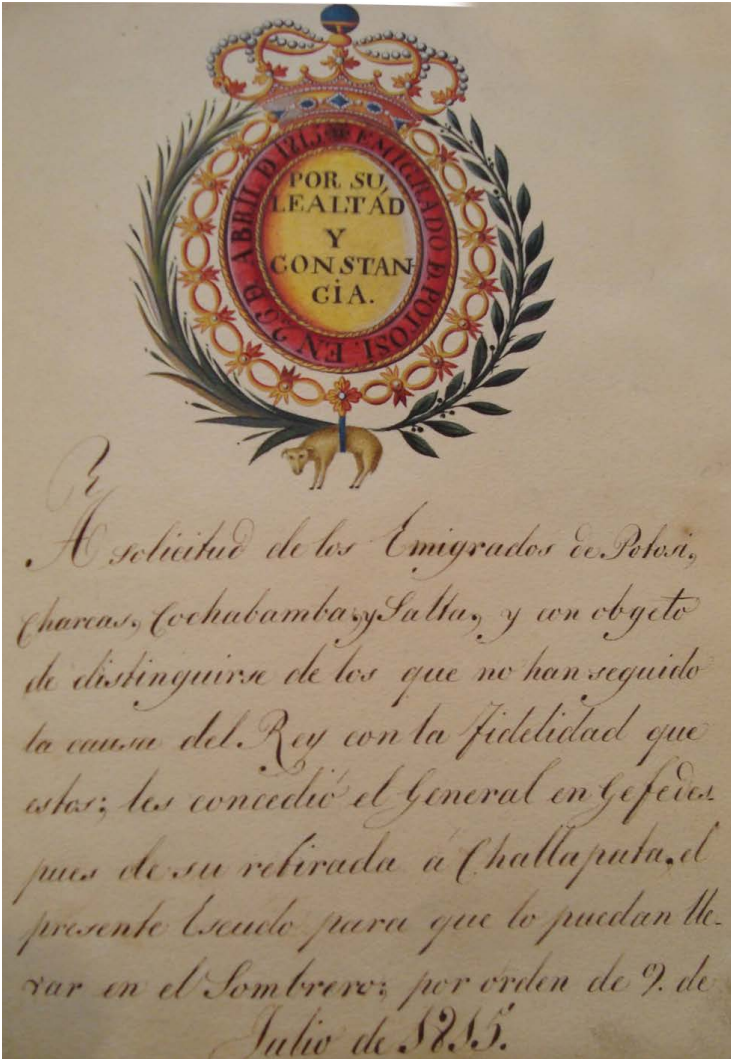 EMIGRADO D POTOSÍ. EN 25 D ABRÍL D 1815
POR SU
LEALTÁD
Y
CONSTAN-
CIA.
A solicitud de los Emigrados de Potosi,
Charcas, Cochabamba, y Salta, y con obgeto
de distinguirse de los que no han seguido
la causa del Rey con la fidelidad que
estos; les concedió el General en Gefe des-
pues de su retirada á Challapata, el
presente Escudo para que lo puedan lle-
var en el Sombrero; por orden de 9. de
Julio de 1815.